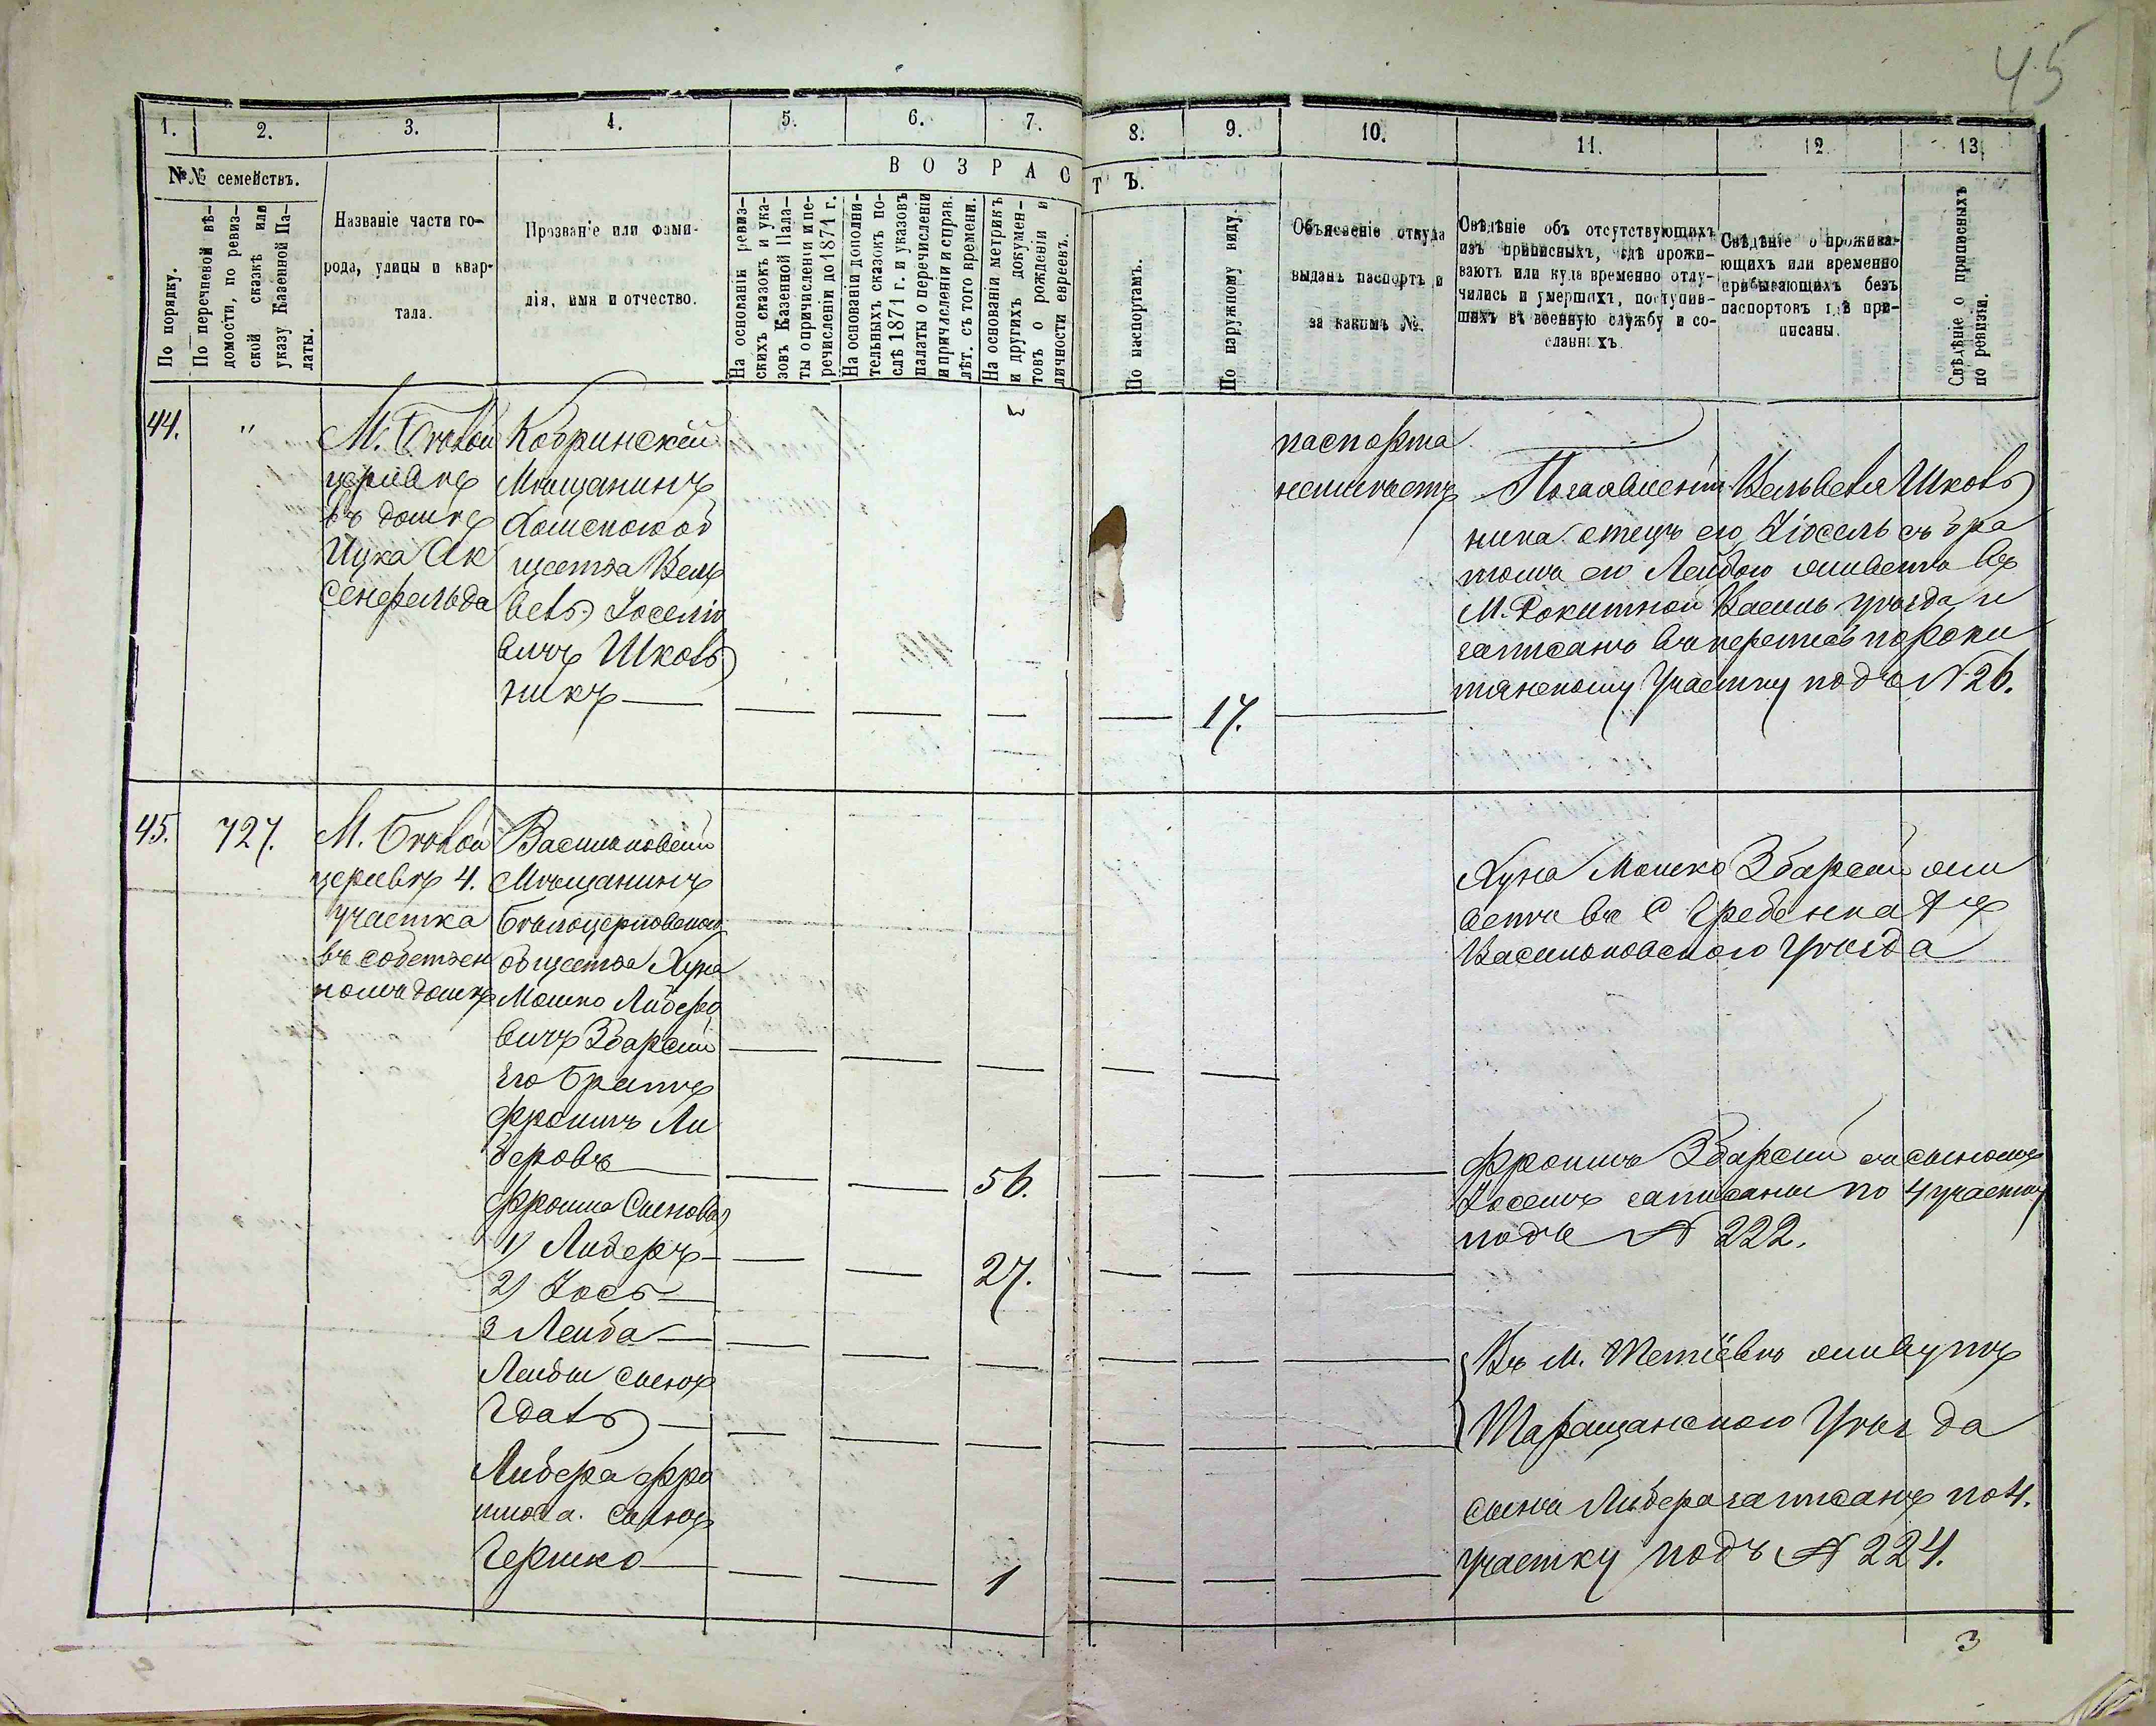 45
1.
2.
3.
4.
5.
6.
7.
8.
9.
10.
11.
12
13.
№№ семействъ.
По порядку.
По перечневой вѣ-
домости, по ревиз-
ской сказкѣ или
указу Казенной Па-
латы.
Названіе части го-
рода, улицы и квар-
тала.
Прозваніе или фами-
лія, имя и отчество.
ВОЗРАСТЪ.
На основаніи ревиз-
скихъ сказокъ и ука-
зовъ Казенной Пала-
ты о причисленіи и пе-
речисленіи до 1871 г.
На основаніи дополни-
тельныхъ сказокъ по-
слѣ 1871 г. и указовъ
палаты о перечисленіи
и причисленіи и справ.
лѣт. съ того времени.
На основаніи метрикъ
и другихъ докумен-
товъ о рожденіи и
личности евреевъ.
По паспортамъ.
По наружному виду.
Объясненіе откуда
выданъ паспортъ и
за какимъ №.
Свѣдѣніе объ отсутствующихъ
изъ приписныхъ, гдѣ прожи-
ваютъ или куда временно отлу-
чились и умершихъ, поступив-
шихъ въ военную службу и со-
сланныхъ.
Свѣдѣніе о прожива-
ющихъ или временно
прибывающихъ безъ
паспортовъ гдѣ при-
писаны.
Свѣдѣніе о приписныхъ
по ревизіи.
44.
"
М. Бѣлой
церквѣ
въ домѣ
Ицка Ак
сенфельда
Кобринскій
Мѣщанинъ
общества Вель
вель Іоселіо
вичъ Школь
никъ
17.
паспорта
неимѣетъ
Вельвеля Школь
ника отецъ его Іосель съ бра
томъ его Лейбою живетъ въ
М. Рокитной Васильк уѣзда и
записанъ въ перепись по Роки
тянскому Участку подъ № 26.
45.
727.
М. Бѣлой
церквѣ 4.
участка
въ собствен
номъ домѣ
Васильковскій
Мѣщанинъ
Бѣлоцерковскаго
общества Хуна
Мошко Либеро
вичъ Збарскій
Его братъ
Фроимъ Ли
беровъ
56.
Фроима Сыновья
1) Либеръ
27.
2) Іось
3 Лейба
Лейбы сынъ
Гдаль
Либера Фро
имова сынъ
Гершко
1
Хуна Мошко Збарскій жи
ветъ въ С Гребенкахъ
Васильковскаго Уѣзда
Фроимъ Збарскій съ сыномъ
Іосемъ записаны по 4 участку
подъ № 222.
Въ М. Тетіевѣ живутъ
Таращанскаго Уѣзда
сынъ Либера записанъ по 4.
участку подъ № 224.
3